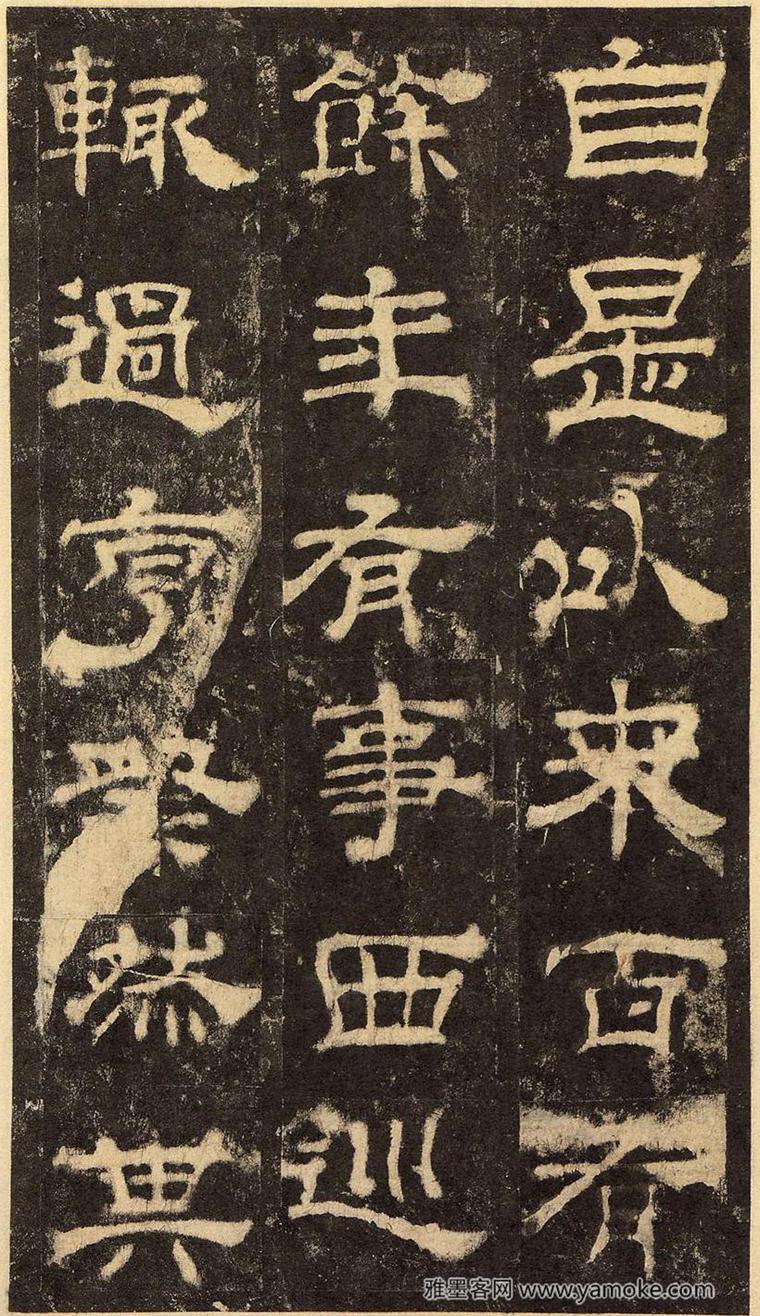 自是以來百有
餘年有事西巡
輒過亨祭然其
雅墨客网 www.yamoke.com